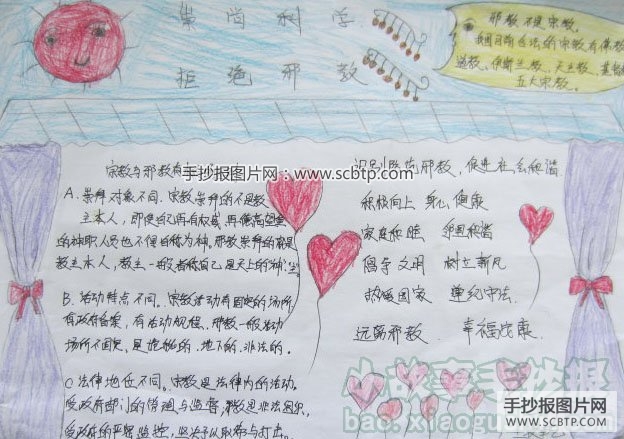 崇尚科学
拒绝邪教
邪教不是宗教,
我国目前合法的宗教有佛教
道教、伊斯兰教、天主教、基督教
五大宗教。
宗教与邪教有
手抄报图片网
www.scbtp.com
识别防范邪教,促进社会和谐
A、崇拜对象不同。宗教崇拜的不是教
主本人,即使已再有权威,再德高望重
的神职人员也不得自称为神,邪教崇拜的就是
教主本人,教主一般者称自己是天上的"神"
B、活动特点不同。宗教活动有固定的场所
有政府备案,有活动规程。邪教一般活动
场所不固定,是诡秘的、地下的、非法的。
C法律地位不同。宗教是法律内的活动。
受政府部门的管理与监督,邪教是非法组织,
受政府的严密监控,坚决予以取缔与打击。
积极向上 身心健康
家庭和睦 邻里和谐
倡导文明 树立新风
热爱国家 遵纪守法
远离邪教 幸福安康
小故事手抄报
bao.xiaogu
手抄报图片网
WWW.SCBTP.COM